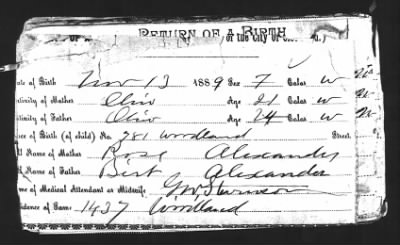 RETURN OF A BIRTH
(of the City of
ate of Birth Nov 13 1889 Sex F Color W
ativity of Mother Ohio Age 21 Color W
ativity of Father Ohio Age 24 Color W
ce of Birth (of child) No. 781 Woodland Street
l Name of Mother Rose Alexander
l Name of Father Bert Alexander
me of Medical Attendant or Midwife
idence of Same 1437 Woodland